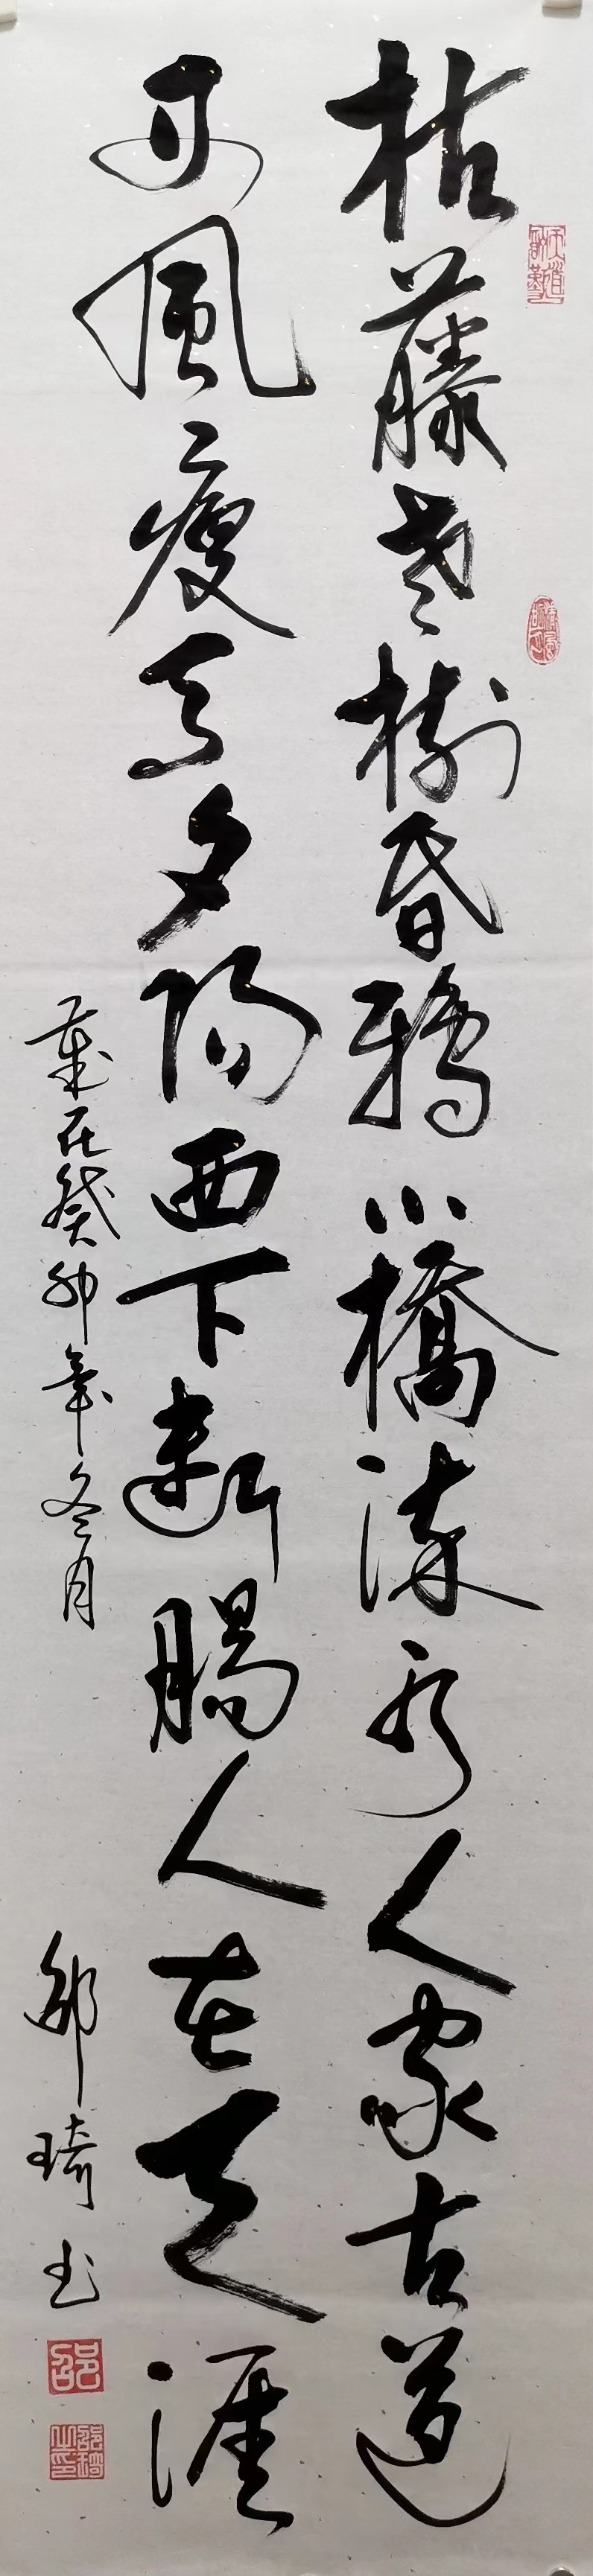 枯藤老樹昏鴉小橋流水人家古道
西風瘦馬夕陽西下斷腸人在天涯
歲在癸卯年冬月
邵琦书
邵
邵琦之印